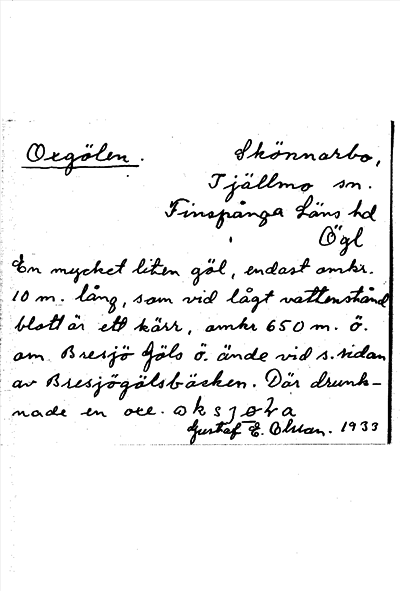 Oxgölen.
Skönnarbo,
Tjällmo sn.
Finspånga Läns hd
Ögl
En mycket liten göl, endast omkr.
10 m. lång, som vid lågt vattenstånd
blott är ett kärr, omkr 650 m. ö.
om Bresjö Göls ö. ände vid s. sidan
av Bresjögölsbäcken. Där drunk-
nade en oxe.
Gustaf E. Olsson. 1933